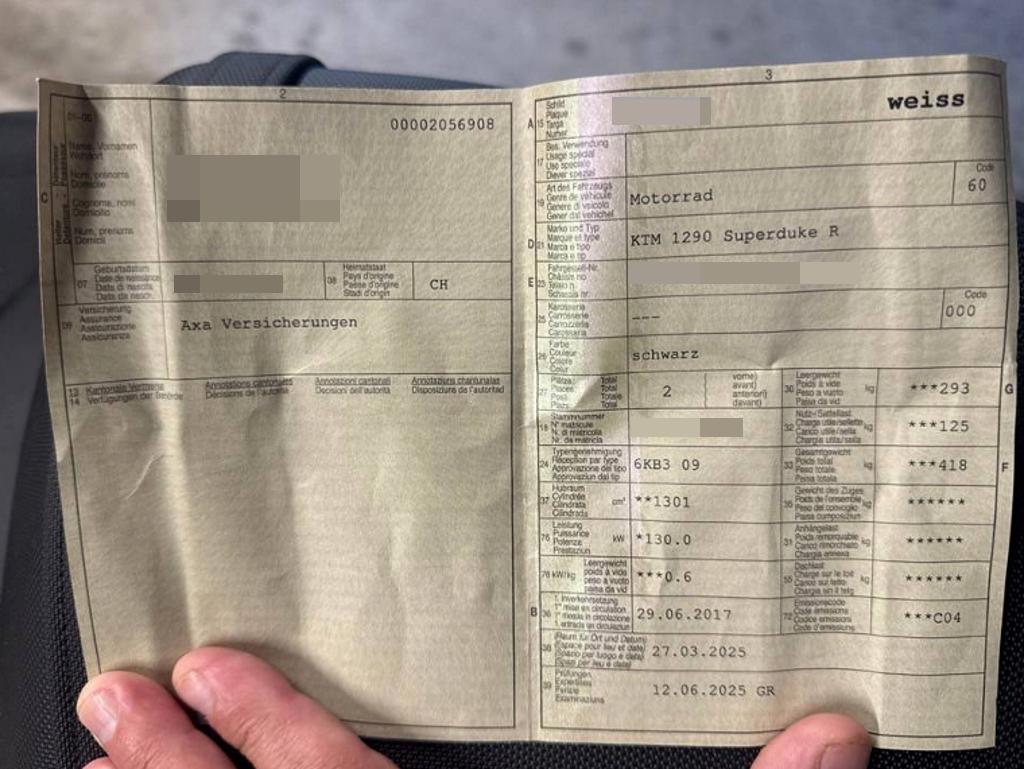 2
01-06
00002056908
C
Halter
Name, Vornamen
Wohnort
Nom, prénoms
Domicile
Cognome, nomi
Domicilio
Num, prenums
Domicil
07
Geburtsdatum
Date de naissance
Data di nascita
Data da nasch.
08
Heimatstaat
Pays d'origine
Paese d'origine
Stadi d'origin
CH
09
Versicherung
Assurance
Assicurazione
Assicuranza
Axa Versicherungen
13 Kantonale Vermerke
14 Verfügungen der Behörde
Annotations cantonales
Décisions de l'autorité
Annotazioni cantonali
Decisioni dell'autorità
Annotaziuns chantunalas
Disposiziuns da l'autoritad
3
weiss
A 15
Schild
Plaque
Targa
Numer
17
Bes. Verwendung
Usage spécial
Uso speciale
Diever spezial
19
Art des Fahrzeugs
Genre de véhicule
Genere di veicolo
Gener dal vehichel
Motorrad
Code
60
D 21
Marke und Typ
Marque et type
Marca e tipo
Marca e tip
KTM 1290 Superduke R
E 23
Fahrgestell-Nr.
Châssis no
Telaio n.
Schassis nr.
25
Karosserie
Carrosserie
Carrozzeria
Carossaria
---
Code
000
26
Farbe
Couleur
Colore
Colur
schwarz
27
Plätze Total
Places Total
Posti Totale
Plazs Total
2
vorne)
avant)
anteriori)
davant)
30
Leergewicht
Poids à vide
Peso a vuoto
Paisa da vid
kg
***293
G
18
Stammnummer
N° matricule
N. di matricola
Nr. da matricla
32
Nutz-/Sattellast
Charge utile/sellette
Carico utile/sella
Chargia utila/sella
kg
***125
24
Typengenehmigung
Réception par type
Approvazione del tipo
Approvaziun dal tip
6KB3 09
33
Gesamtgewicht
Poids total
Peso totale
Paisa totala
kg
***418
F
37
Hubraum
Cylindrée
Cilindrata
Cilindrada
cm³
**1301
35
Gewicht des Zuges
Poids de l'ensemble
Peso del convoglio
Paisa cumposiziun
kg
******
76
Leistung
Puissance
Potenza
Prestaziun
kW
*130.0
31
Anhängelast
Poids remorquable
Carico rimorchiato
Chargia annexa
kg
******
78 kW/kg
Leergewicht
poids à vide
peso a vuoto
paisa da vid
***0.6
55
Dachlast
Charge sur le toit
Carico sul tetto
Chargia sin il tetg
kg
******
B 36
1. Inverkehrsetzung
1re mise en circulation
1a messa in circolazione
1. entrada en circulaziun
29.06.2017
72
Emissionscode
Code émissions
Codice emissioni
Code d'emissiuns
***C04
38
(Raum für Ort und Datum)
(Espace pour lieu et date)
(Spazio per luogo e data)
(Spazi per lieu e data)
27.03.2025
39
Prüfungen
Expertises
Perizie
Examinaziuns
12.06.2025 GR